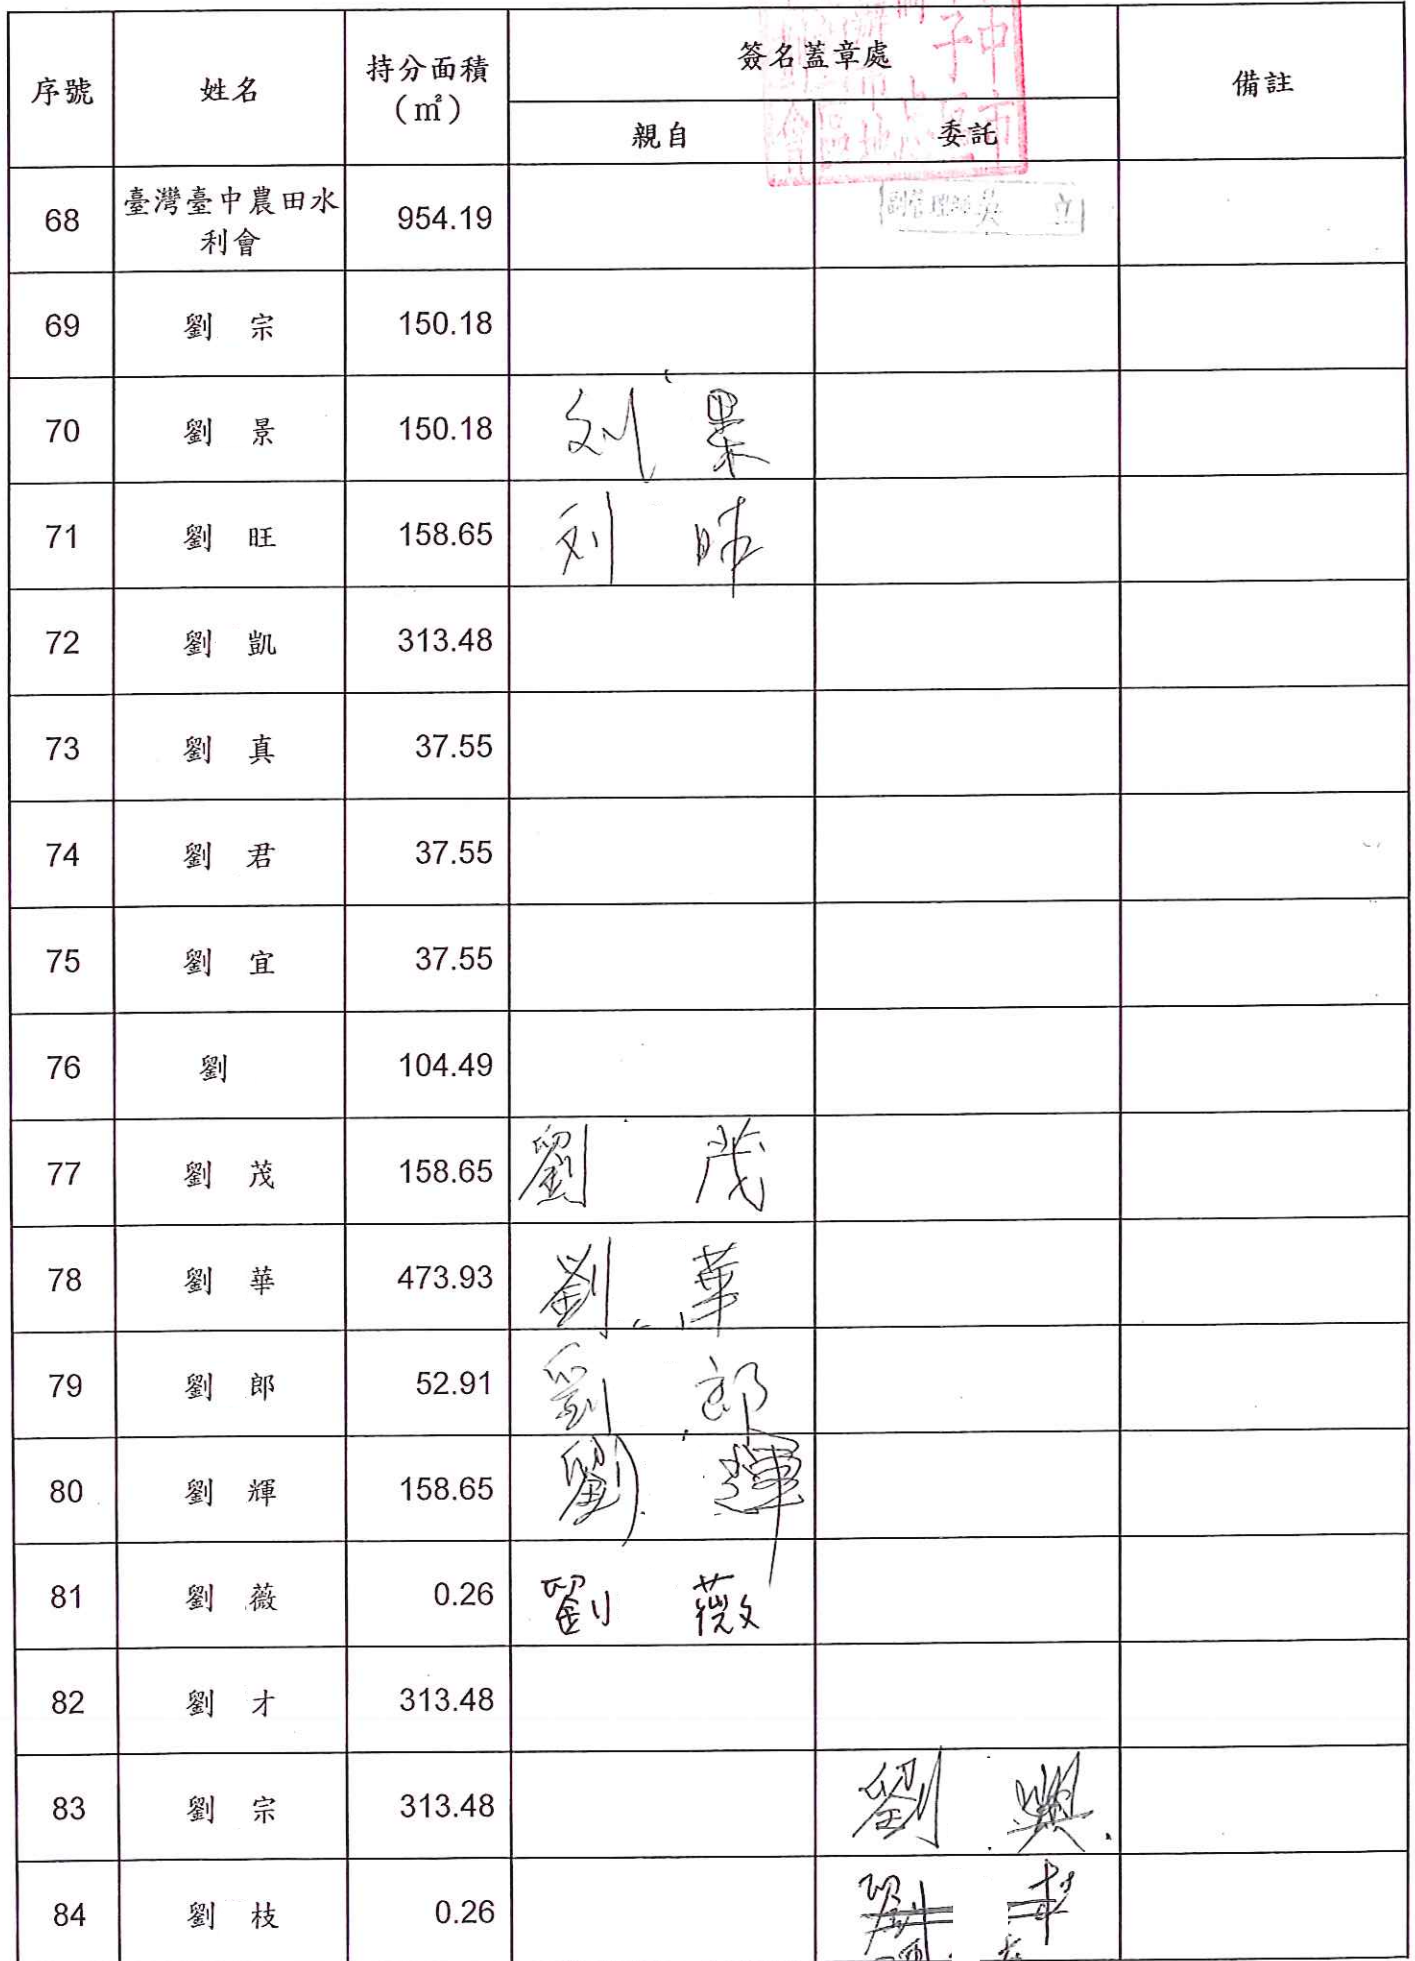 序號 姓名 持分面積(㎡) 簽名蓋章處 備註
親自 委託
68 臺灣臺中農田水利會 954.19 副管理師吳 立
69 劉 宗 150.18
70 劉 景 150.18 刘 景
71 劉 旺 158.65 刘
72 劉 凱 313.48
73 劉 真 37.55
74 劉 君 37.55
75 劉 宜 37.55
76 劉 104.49
77 劉 茂 158.65 劉 茂
78 劉 華 473.93 劉 華
79 劉 郎 52.91 劉 郎
80 劉 輝 158.65 劉 輝
81 劉 薇 0.26 劉 薇
82 劉 才 313.48
83 劉 宗 313.48 劉 興
84 劉 枝 0.26 劉